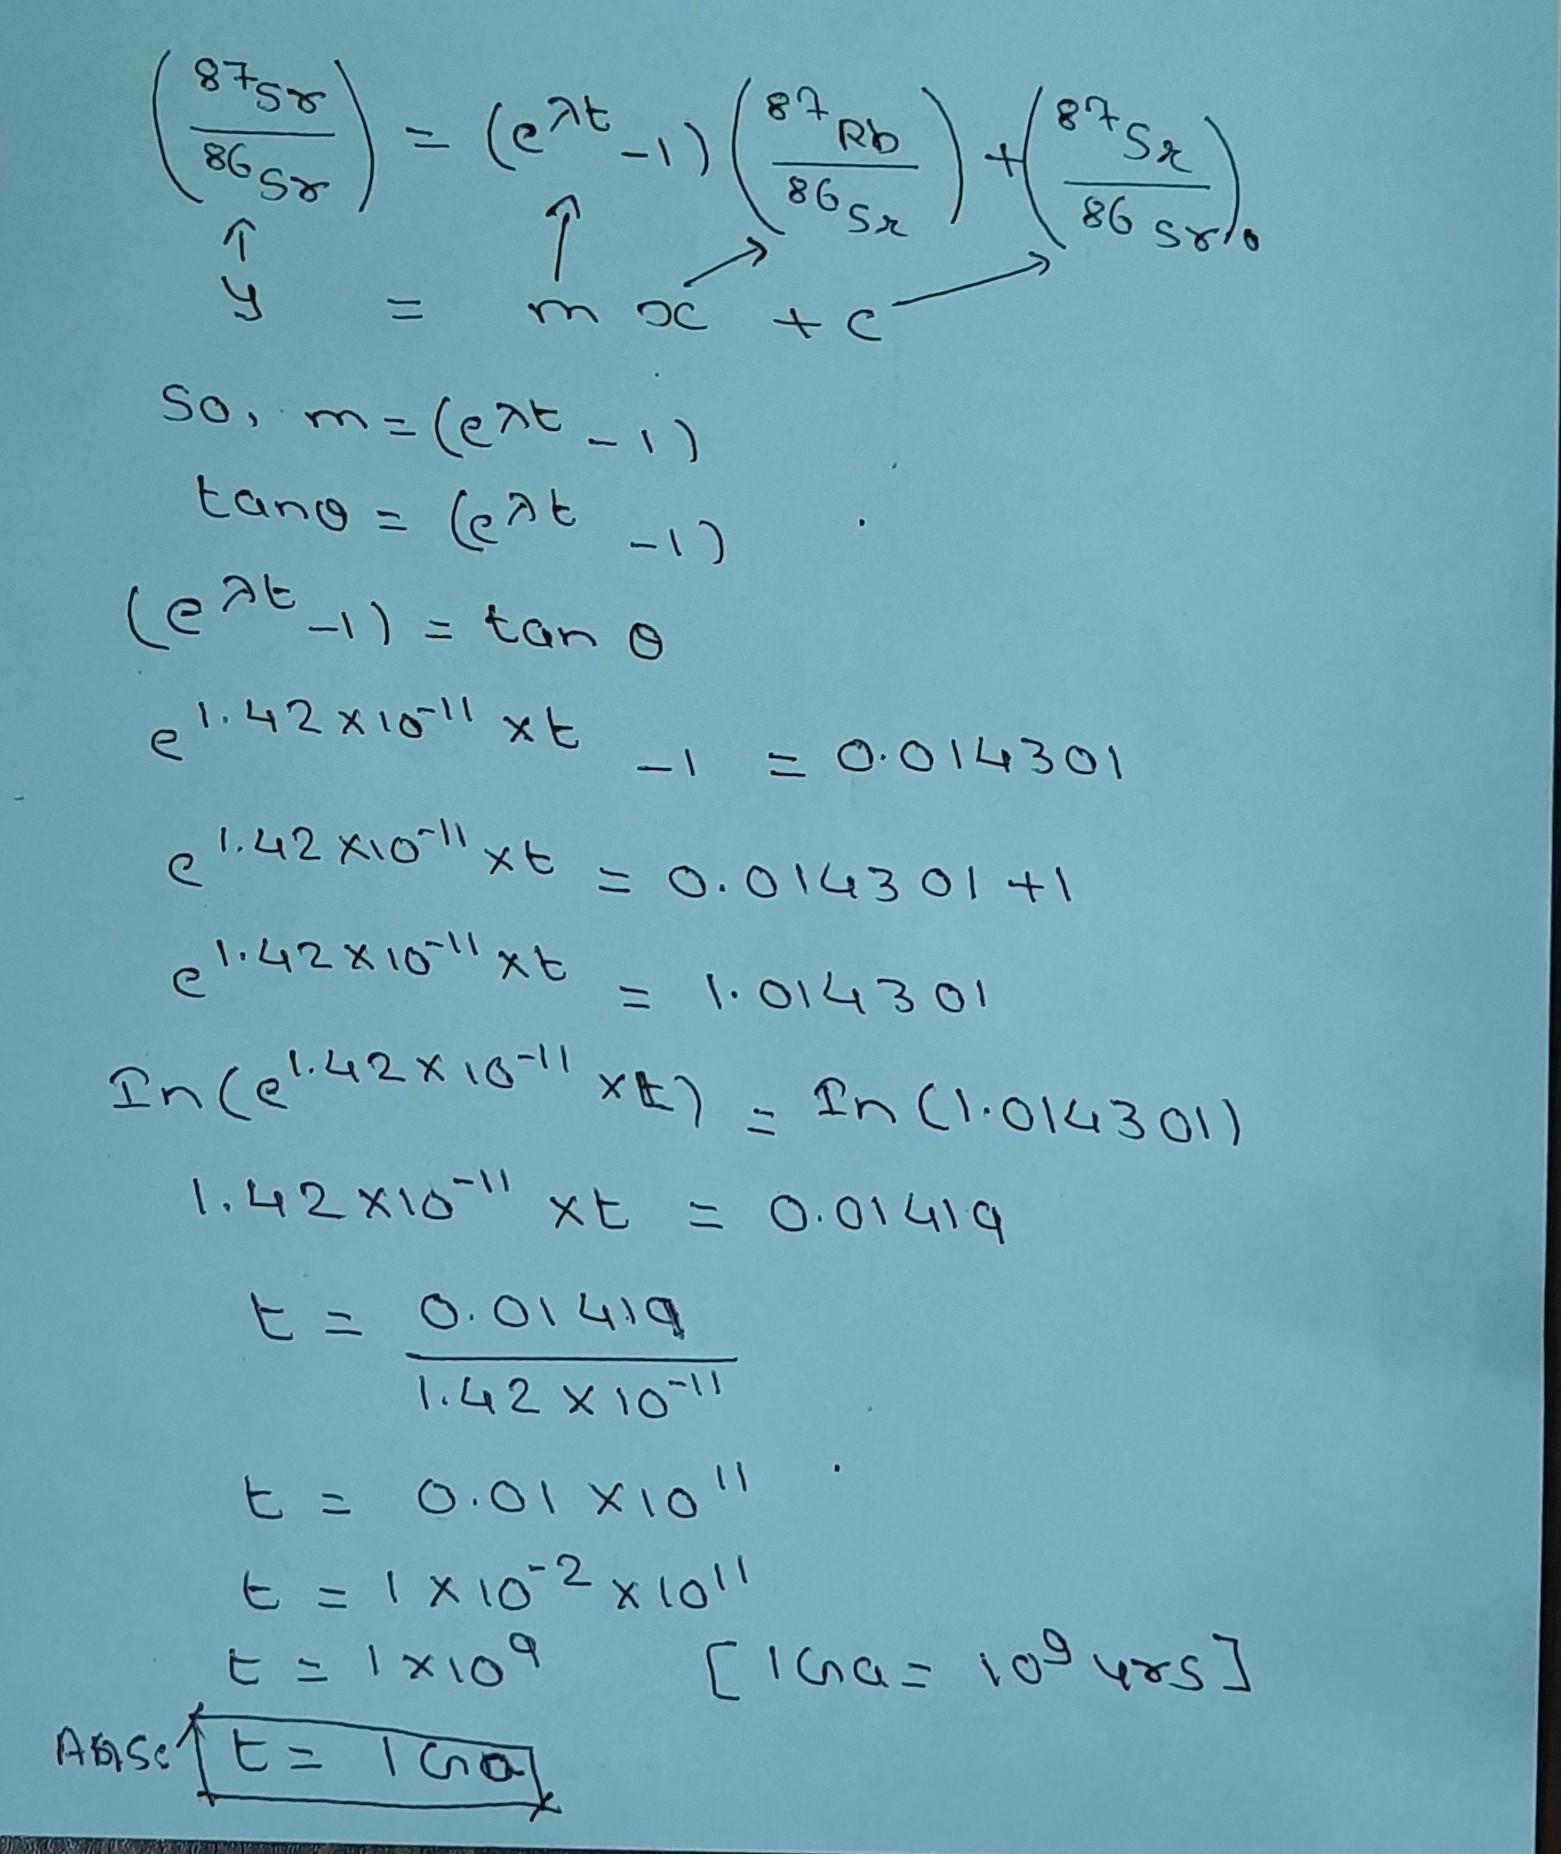 (⁸⁷Sr/⁸⁶Sr) = (e^λt -1) (⁸⁷Rb/⁸⁶Sr) + (⁸⁷Sr/⁸⁶Sr)₀
↑ ↑
y = m x + c
So, m = (e^λt - 1)
tanθ = (e^λt -1)
(e^λt -1) = tan θ
e^1.42×10^-11 ×t -1 = 0.014301
e^1.42×10^-11 ×t = 0.014301 +1
e^1.42×10^-11 ×t = 1.014301
In(e^1.42×10^-11 ×t) = In (1.014301)
1.42×10^-11 ×t = 0.01419
t = 0.01419/1.42×10^-11
t = 0.01 ×10^11
t = 1×10^-2 ×10^11
t = 1×10^9 [1Ga = 10^9 yrs]
t = 1Ga